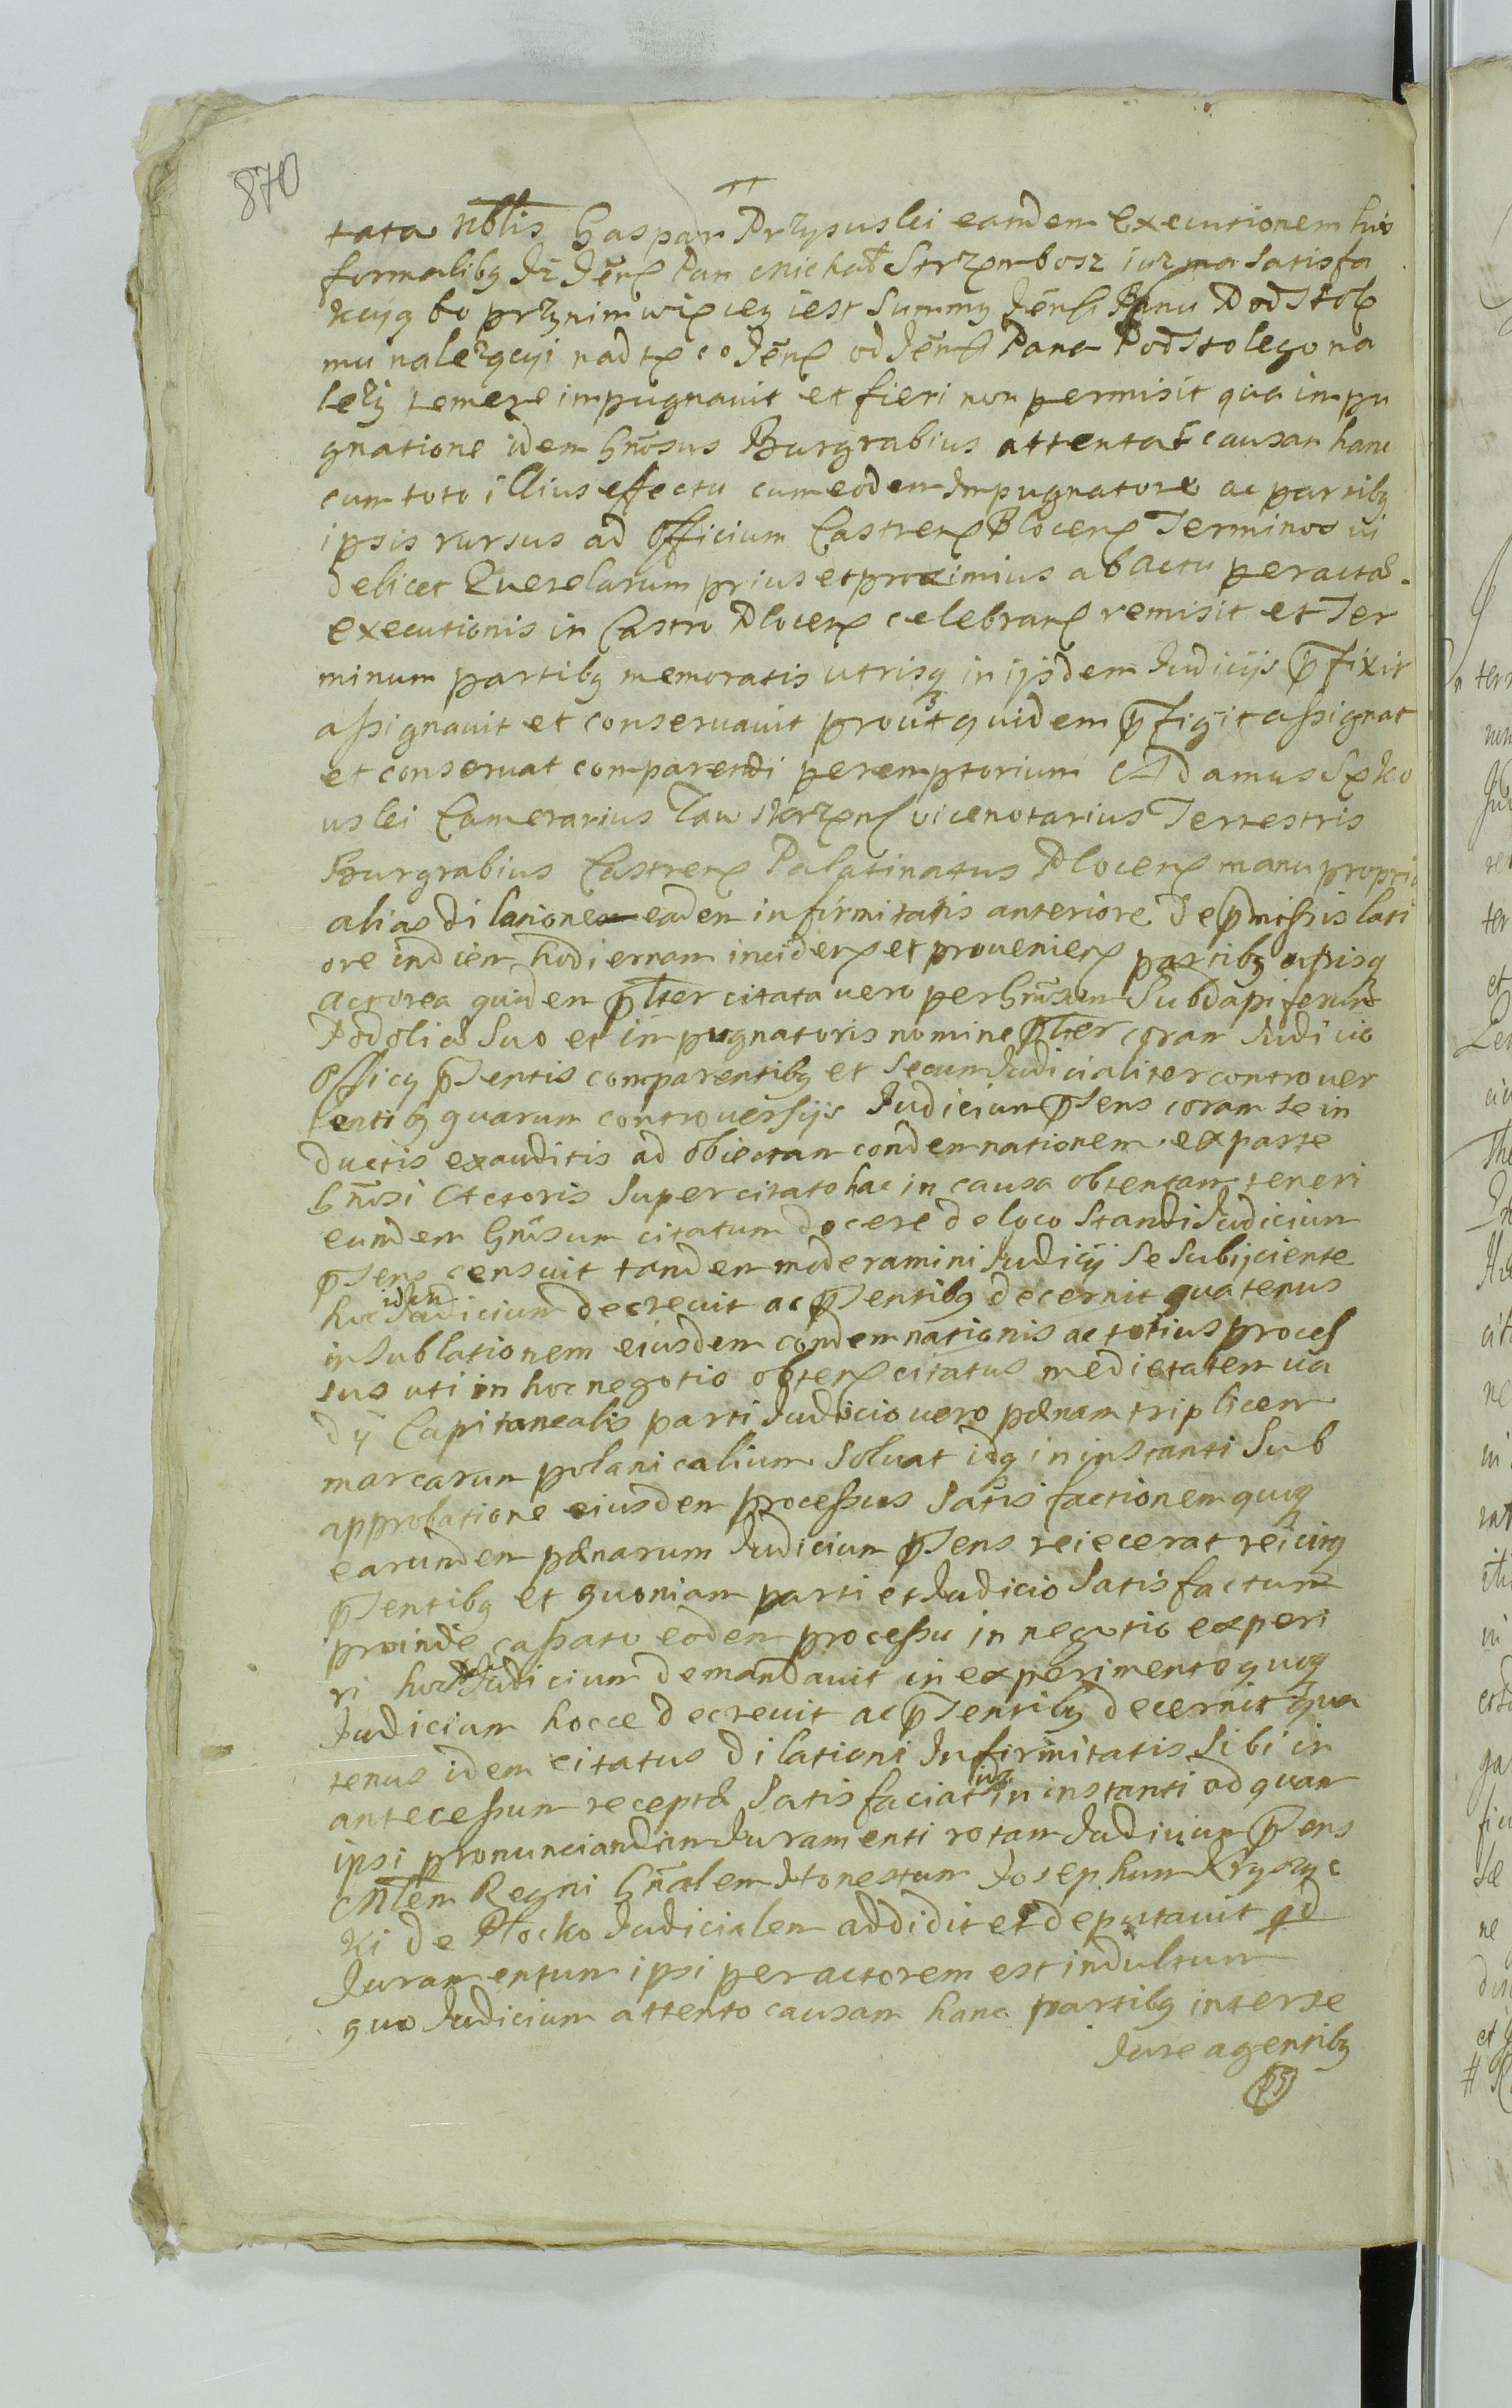 870
tata Nblis Gaspar Przypuslci eandem Executionem his
formalibq Iż Jeń Pan Michał Strzembosz iuz ma satisfa
kcyą bo przynim więcey iest Summy Jeń Panu PodStole
mu nalezącyi nad tę co Jeń od Jeń Pana PodStolego na
lezy temere impugnauit et fieri non permisit qua impu
gnatione idem Gnosus Burgrabius attenta causam hanc
cum toto illius effectu cum eodem Impugnatore ac partibq
ipsis rursus ad Officium Castren Plocen Terminos vi
delicet Querelarum prius et proximius ab actu peractæ
executionis in Castro Plocen celebran remisit et Ter
minum partibq memoratis utrisq in ijsdem Iudicijs p̄fixit
assignauit et conseruauit prout quidem p̄figit assignat
et conseruat comparendi peremptorium Adamus
Camerarius vicenotarius Terrestris
Burgrabius Castren Palatinatus Plocen manu propria
alias dilatione eadem infirmitatis anteriore de p̄missis lati
ore in diem hodiernam inciden et prouenien partibq utrisq
actorea quidem p̄lter citata uero per Gnosum Subdapiferum
Podoliæ suo et impugnatoris nomine p̄lter coram Iudicio
Officij p̄sentis comparentibq et secum Iudicialiter controuer
tentibq quarum controuersijs Iudicium p̄sens coram se in
ductis exauditis ad obiectam condemnationem ex parte
Gnosi Actoris super citato hac in causa obtentam teneri
eundem Gnosum citatum docere de loco standi Iudicium
p̄sens censuit tandem moderamini Iudicij se subijciente
hoc idem Iudicium decreuit ac p̄sentibq decernit quatenus
in sublationem eiusdem condemnationis ac totius proces
sus uti in hoc negotio obten citatus medietatem va
dij Capitanealis parti Iudicio uero pænam triplicem
marcarum polanicalium soluat idq in instanti sub
approbatione eiusdem processus satisfactionem quoq
earundem pænarum Iudicium p̄sens reiecerat reijcitq
p̄sentibq et quoniam parti et Iudicio satisfactum
proinde cassato eodem processu in negotio experi
ri hocce Iudicium demandauit in experimento quoq
Iudicium hocce decreuit ac p̄sentibq decernit qua
tenus idem citatus dilationi Infirmitatis sibi in
antecessum receptæ satisfaciat idq in instanti ad quam
ipsi pronunciandam Iuramenti rotam Iudicium p̄sens
Mlem Regni Gnalem Honestum Josephum Kryszyc
ki de Plocko Iudicialem addidit et deputauit qd
Iuramentum ipsi per actorem est indultum
quo Iudicium attento causam hanc partibq inter se
Iure agentibq